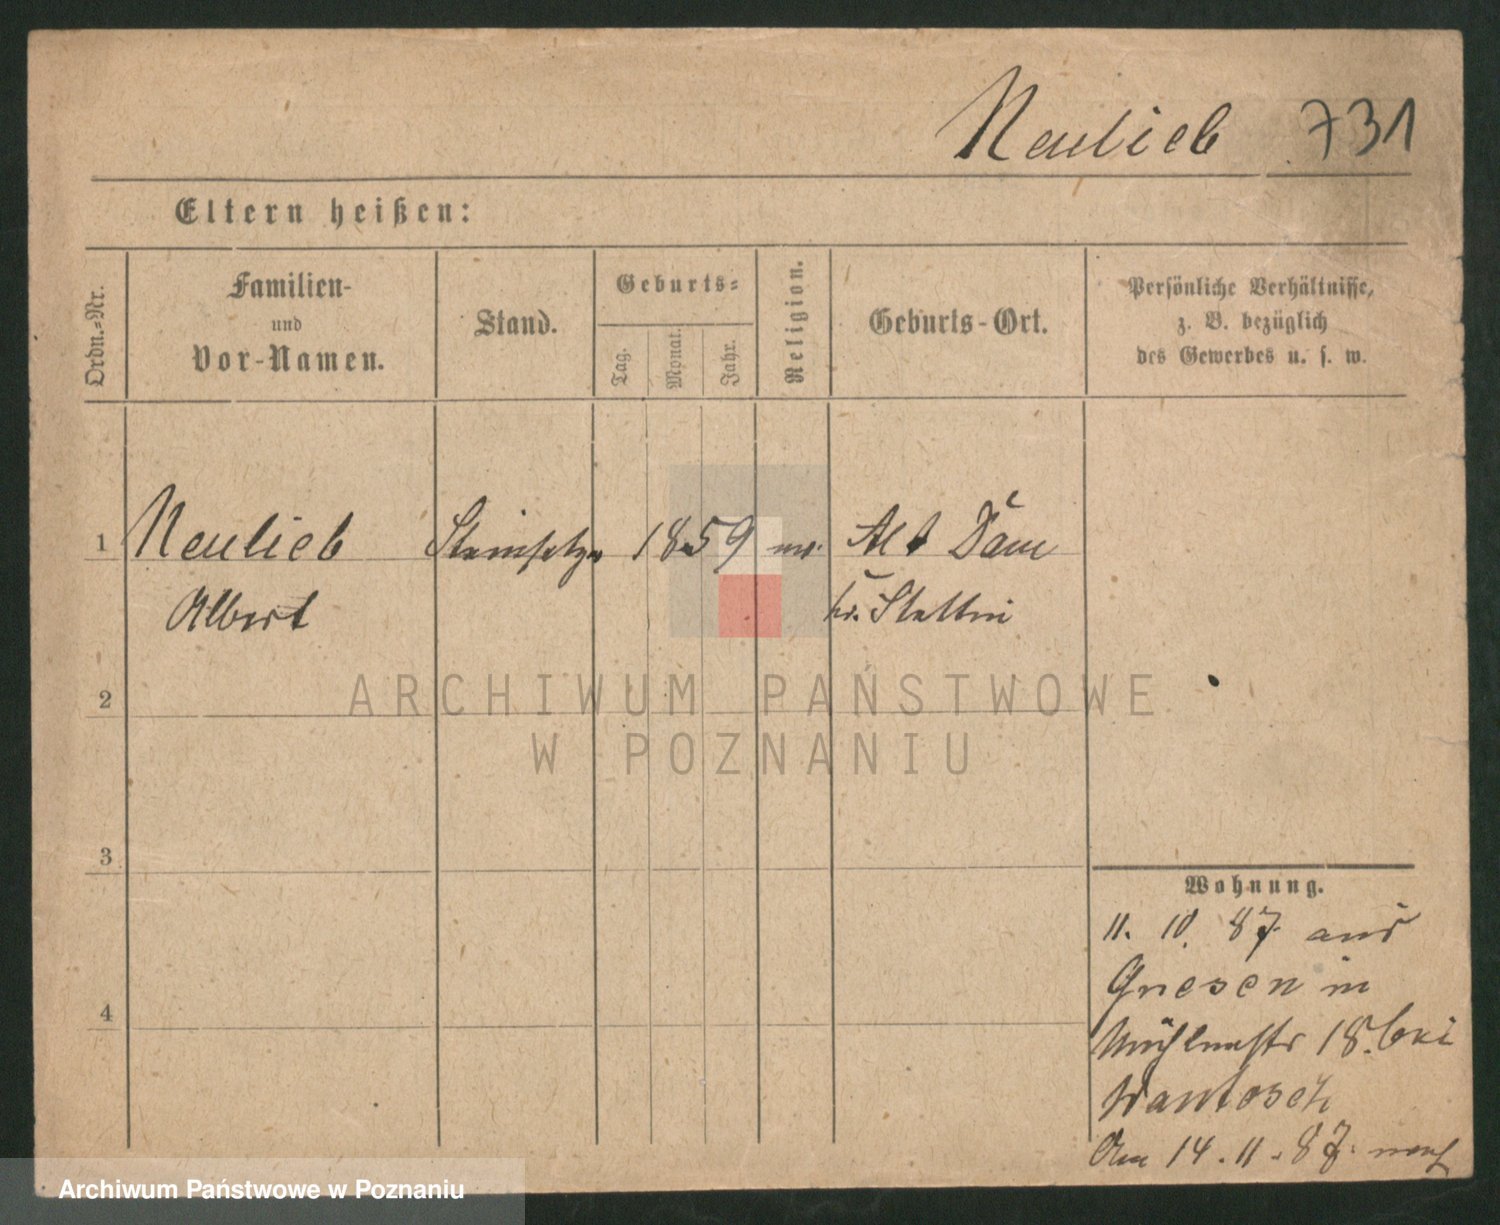 Neulieb 731
Eltern heißen:
Ordn.=Nr.
Familien-
und
Vor-Namen.
Stand.
Geburts=
Tag.
Monat.
Jahr.
Religion.
Geburts-Ort.
Persönliche Verhältnisse,
z. B. bezüglich
des Gewerbes u. s. w.
1
Neulieb
Steinsetzer
1859
Alt Däm
Albert
kr. Stettin
2
3
4
Wohnung.
11. 10. 87 aus
Gnesen in
Mühlenstr 18. bei
Wantosch
Am 14. 11. 87. nach
ARCHIWUM PAŃSTWOWE
W POZNANIU
Archiwum Państwowe w Poznaniu